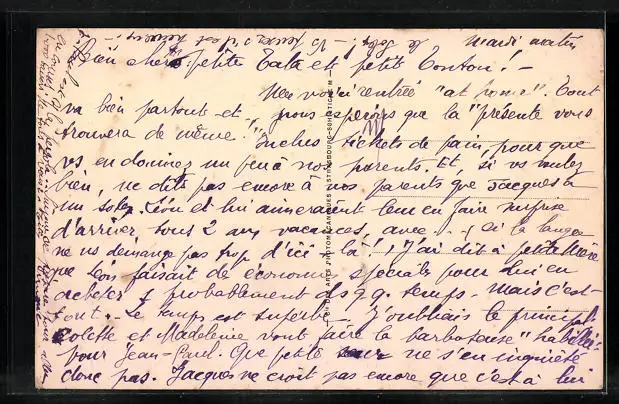 mardi matin
Bien chers petite Tata et petit Tonton! -
Me voici rentrée "at home". Tout
va bien partout et nous espérons que la "présente vous
trouvera de même". Inclus tickets de pain, pour que
vs en donniez un peu à nos parents. Et, si vs voulez
bien, ne dites pas encore à nos parents que Jacques a
un solex. Lou et lui aimeraient leur en faire surprise
d'arriver tous 2 aux vacances, avec... (si la langue
ne vs démange pas trop d'ici là!) J'ai dit à petite Mère
que Lou faisait de économies spéciales pour lui en
acheter 1 probablement ds qq. temps. Mais c'est
tout. - Le temps est superbe - J'oubliais le principal
Colette et Madeleine vont faire la barboteuse "habillée"
pour Jean-Paul. Que petite ne s'en inquiète
donc pas. Jacques ne croit pas encore que c'est à lui
le solex! -
CIE DES ARTS PHOTOMÉCANIQUES STRASBOURG-SCHILTIGHEIM